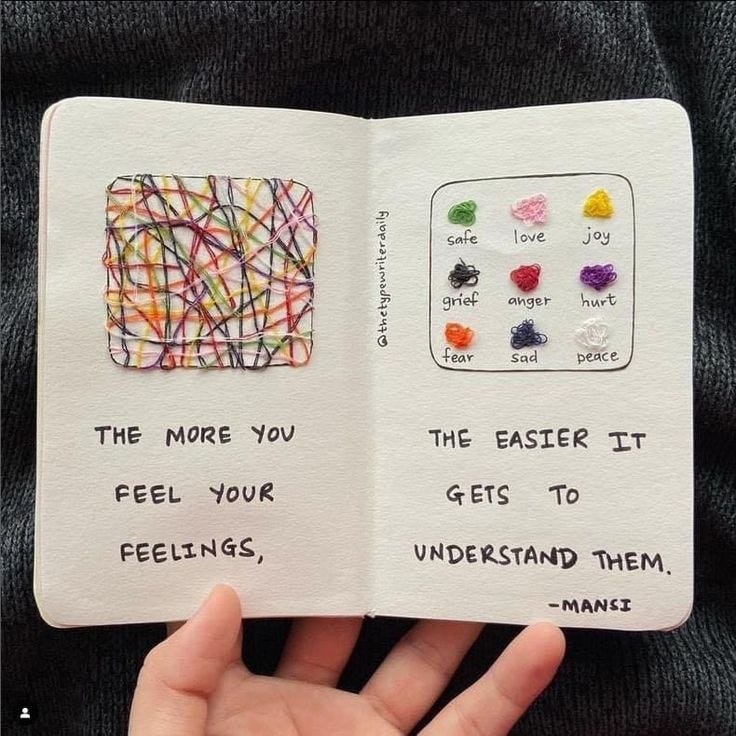 THE MORE YOU
FEEL YOUR
FEELINGS,
@thetypewriterdaily
safe love joy
grief anger hurt
fear sad peace
THE EASIER IT
GETS TO
UNDERSTAND THEM.
-MANSI